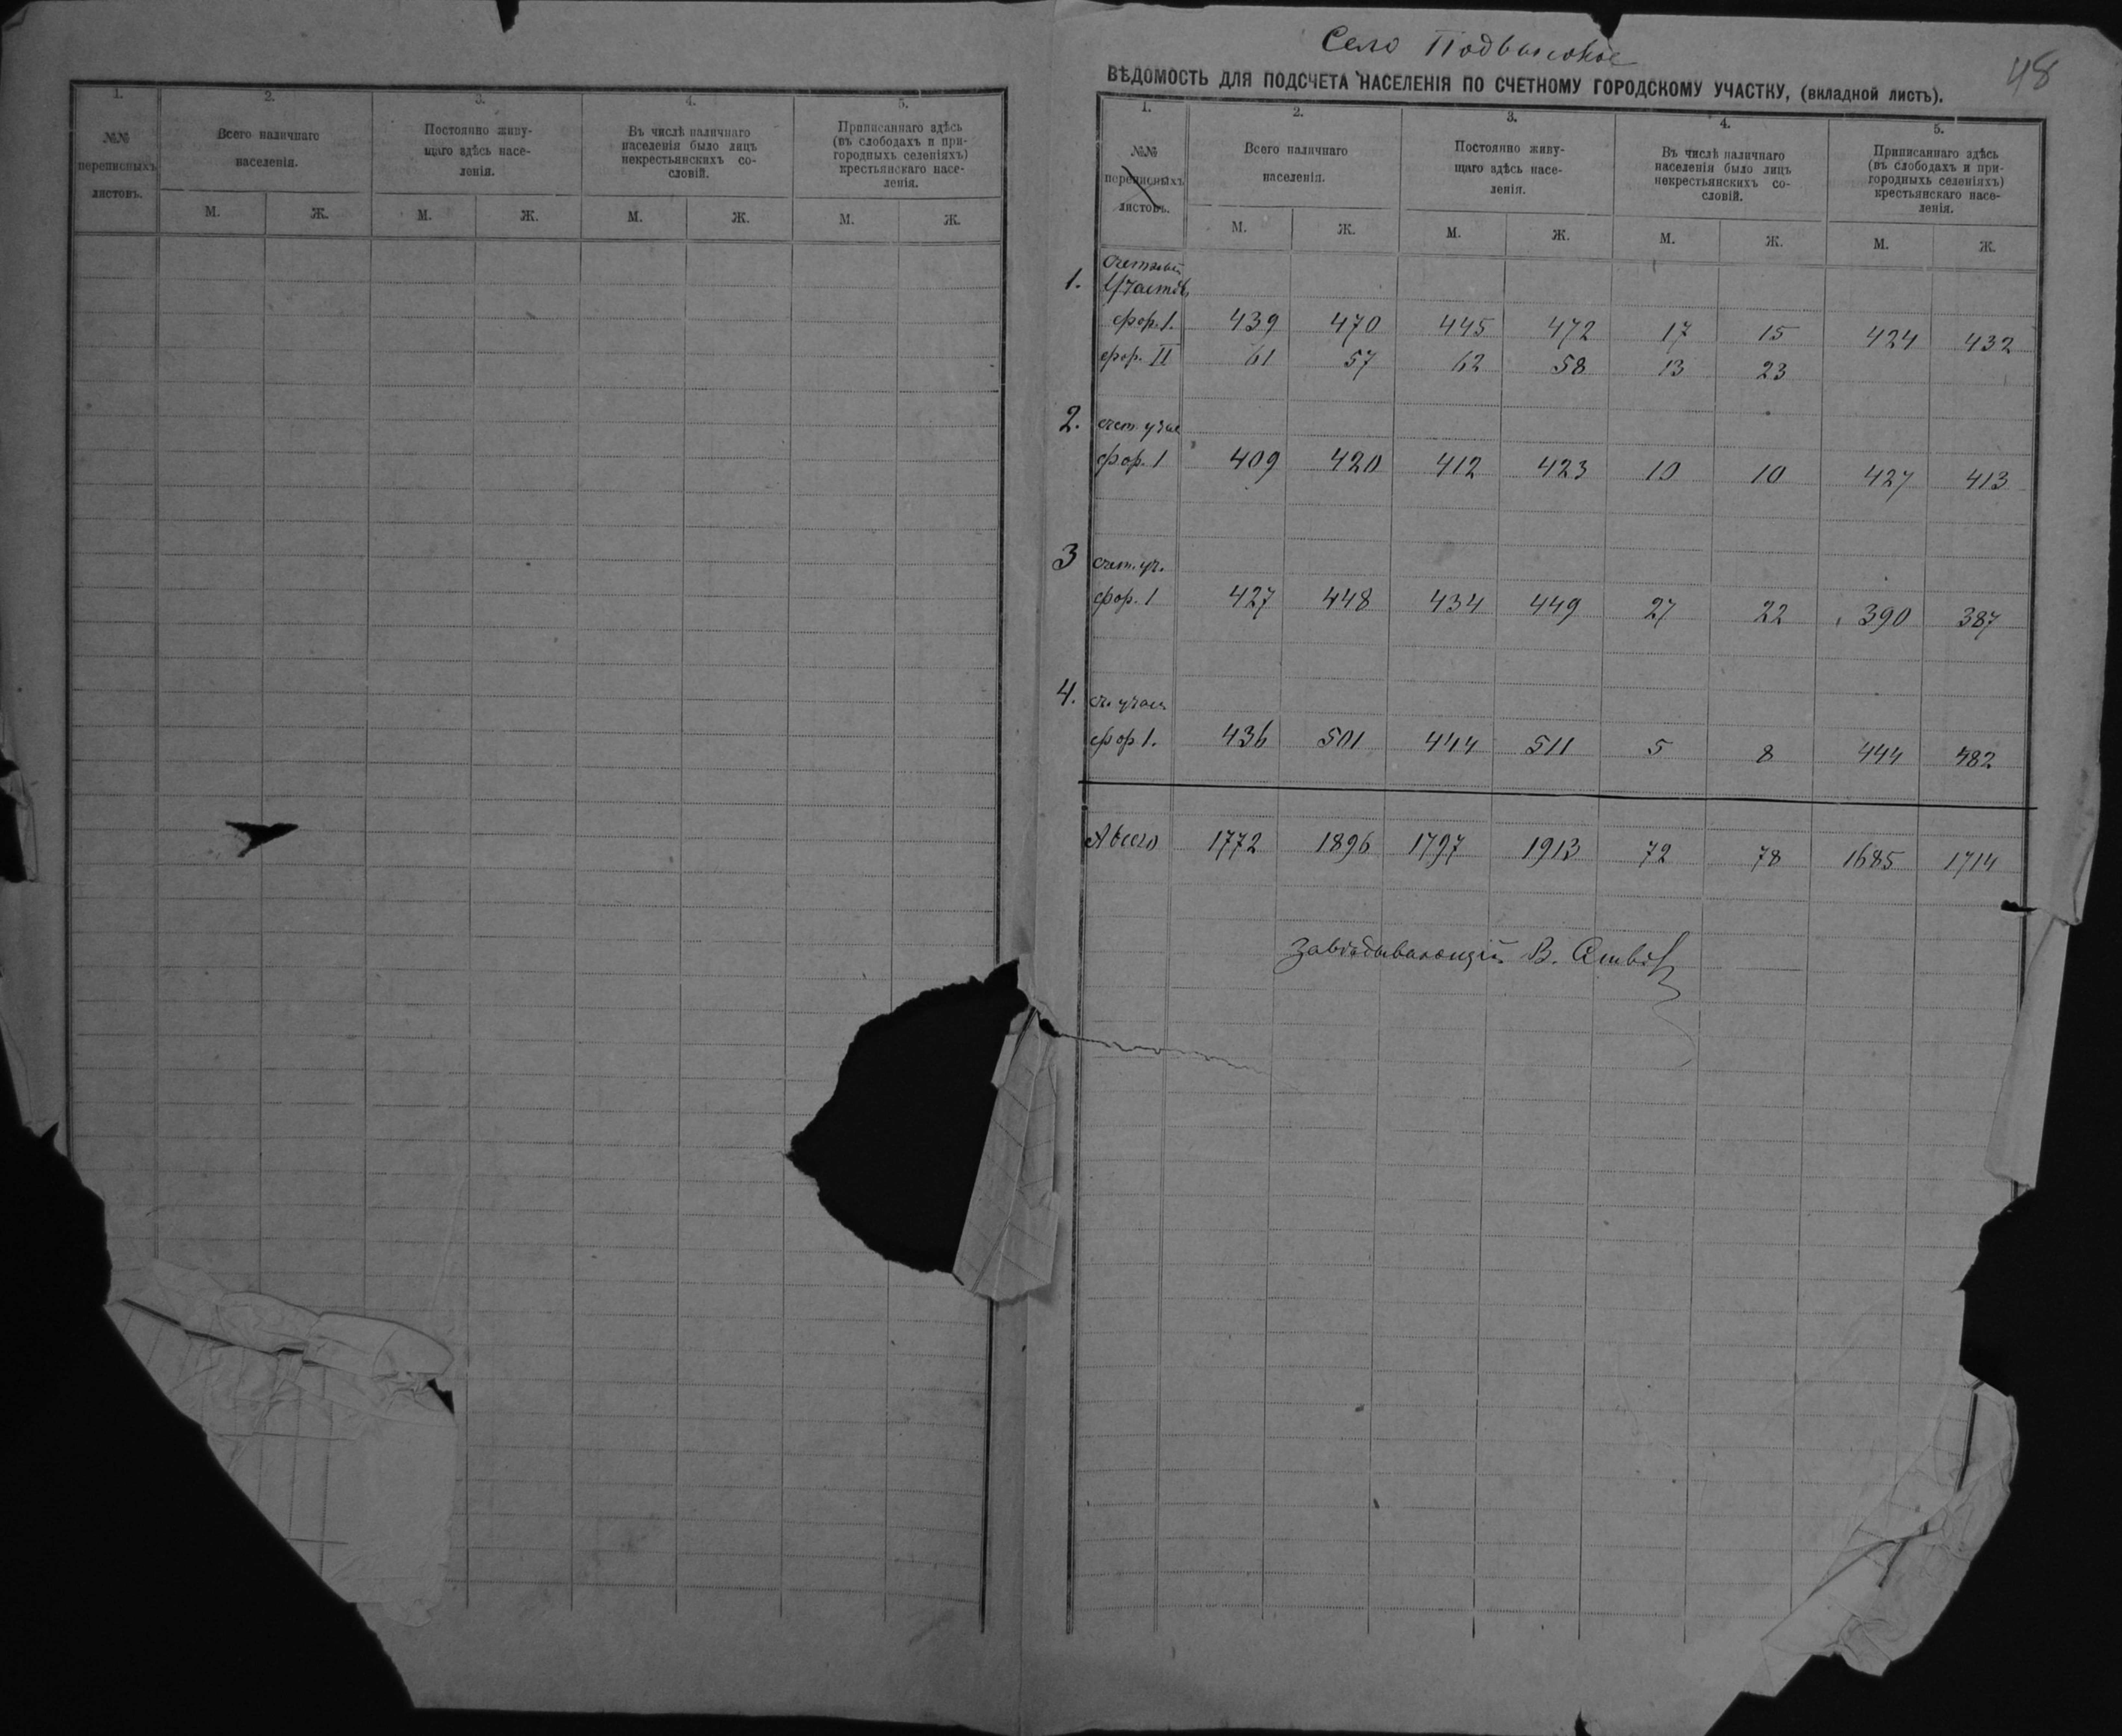 1. 2. 3. 4. 5.
№№ переписныхъ листовъ.
Всего наличнаго населенія.
Постоянно живу-
щаго здѣсь насе-
ленія.
Въ числѣ наличнаго
населенія было лицъ
некрестьянскихъ со-
словій.
Приписаннаго здѣсь
(въ слободахъ и при-
городныхъ селеніяхъ)
крестьянскаго насе-
ленія.
М. Ж. М. Ж. М. Ж. М. Ж.
Село Подвысокое
48
ВѢДОМОСТЬ ДЛЯ ПОДСЧЕТА НАСЕЛЕНІЯ ПО СЧЕТНОМУ ГОРОДСКОМУ УЧАСТКУ, (вкладной листъ).
1. 2. 3. 4. 5.
№№ переписныхъ листовъ.
Всего наличнаго
населенія.
Постоянно живу-
щаго здѣсь насе-
ленія.
Въ числѣ наличнаго
населенія было лицъ
некрестьянскихъ со-
словій.
Приписаннаго здѣсь
(въ слободахъ и при-
городныхъ селеніяхъ)
крестьянскаго насе-
ленія.
М. Ж. М. Ж. М. Ж. М. Ж.
Счетный
1. Участокъ
фор. 1. 439 470 445 472 17 15 424 432
фор. II 61 57 62 58 13 23
2. счет. учас
фор. 1 409 420 412 423 10 10 427 413
3 счет. уч.
фор. 1 427 448 434 449 27 22 390 387
4. сч. учас
фор 1. 436 501 444 511 5 8 444 482
А всего 1772 1896 1797 1913 72 78 1685 1714
Завѣдывающій В.